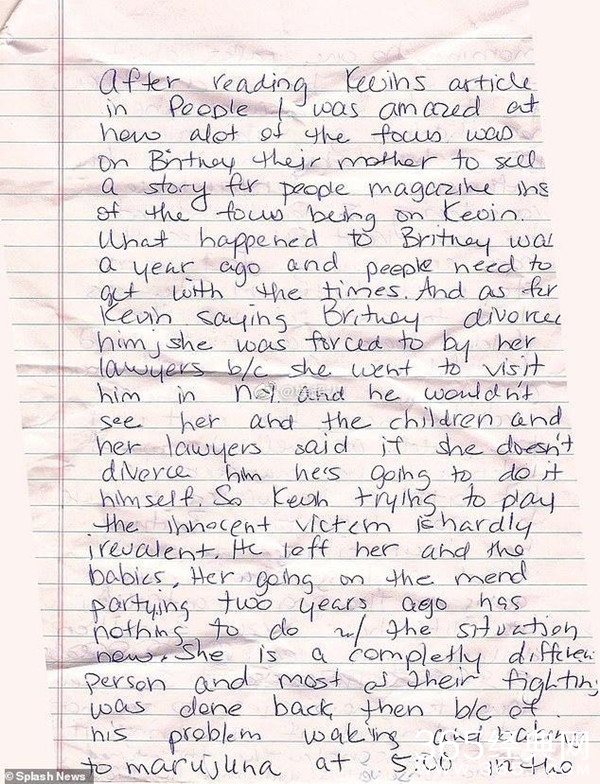 After reading Kevins article
in People I was amazed at
how alot of the focus was
on Britney their mother to sell
a story for people magazine ins
of the focus being on Kevin.
What happened to Britney was
a year ago and people need to
get with the times. And as for
Kevin saying Britney divorce
him, she was forced to by her
lawyers b/c she went to visit
him in NY and he wouldn't
see her and the children and
her lawyers said if she doesn't
divorce him he's going to do it
himself. So Kevin trying to play
the innocent victem is hardly
irevalent. He left her and the
babies. Her going on the mend
partying two years ago has
nothing to do w/ the situation
now. She is a completly differen
person and most of their fighting
was done back then b/c of
his problem waking
to marujuna at 5:00 in the
365经典网
© Splash News